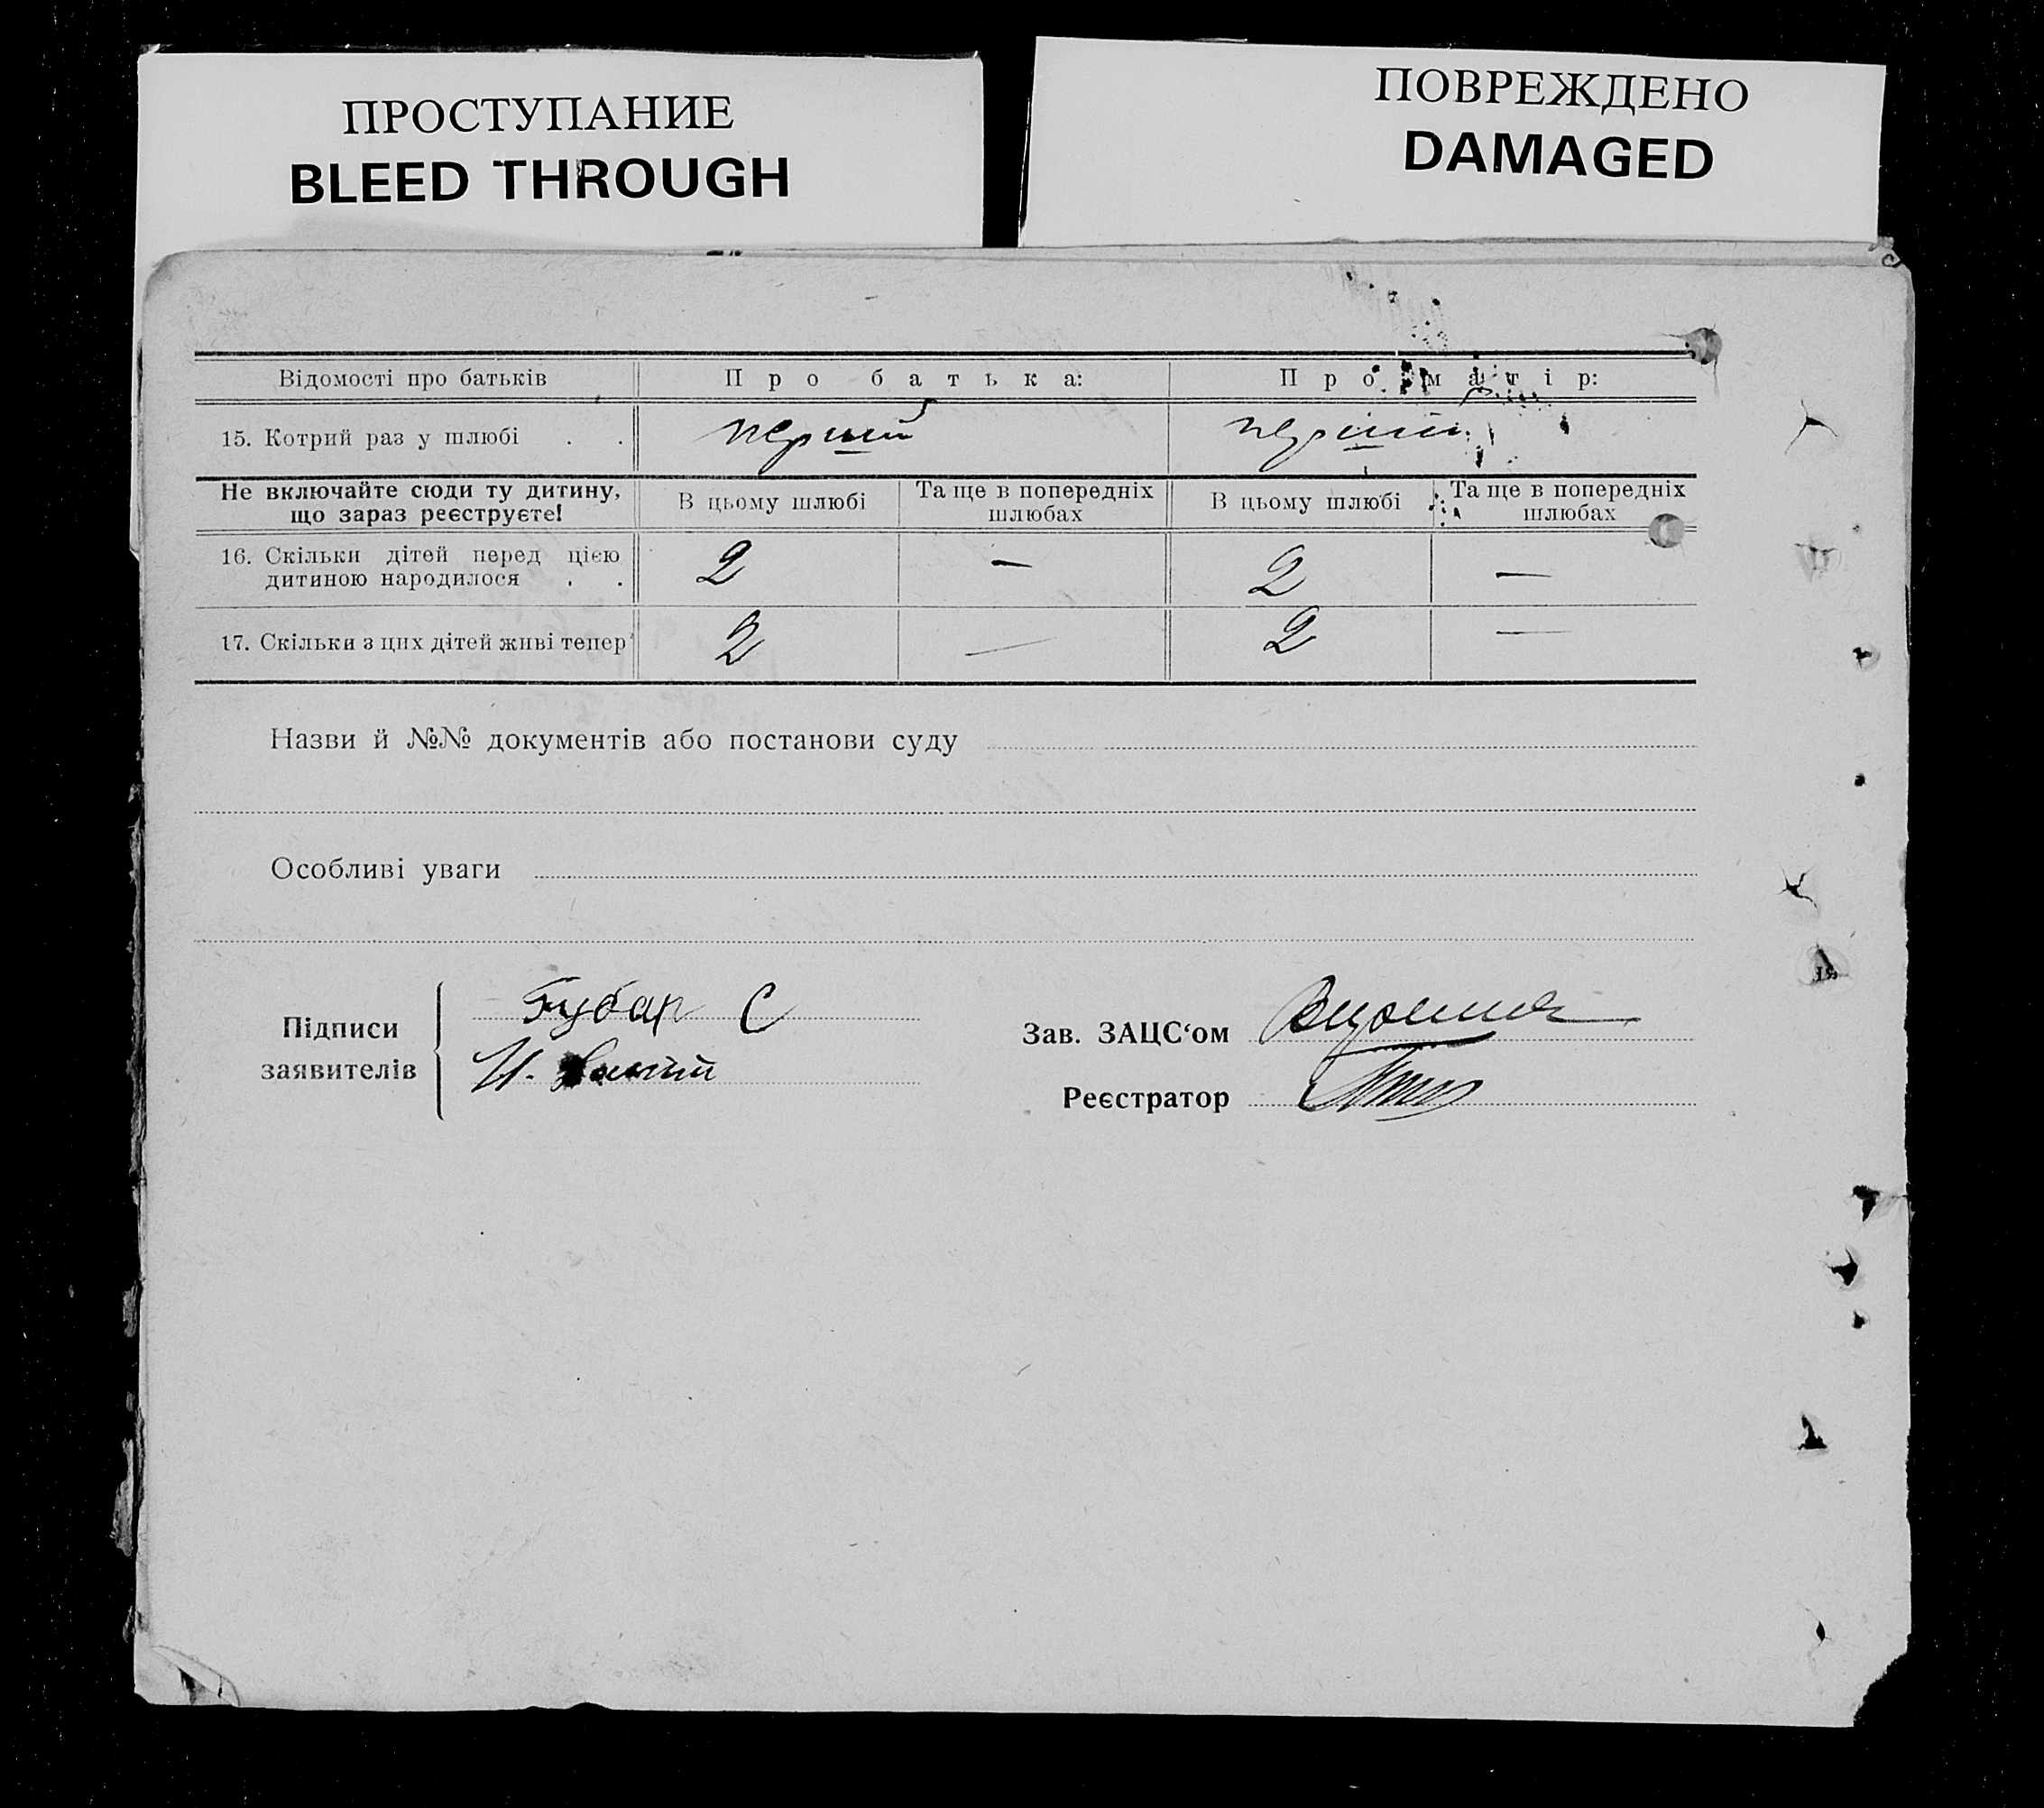 ПРОСТУПАНИЕ
BLEED THROUGH
ПОВРЕЖДЕНО
DAMAGED
Відомості про батьків Про батька: Про матір:
15. Котрий раз у шлюбі . . перший перший
Не включайте сюди ту дитину, що зараз реєструєте! В цьому шлюбі Та ще в попередніх шлюбах В цьому шлюбі Та ще в попередніх шлюбах
16. Скільки дітей перед цією дитиною народилося . . 2 — 2 —
17. Скільки з цих дітей живі тепер 2 — 2 —
Назви й №№ документів або постанови суду
Особливі уваги
Підписи заявителів
Губар С
И.
Зав. ЗАЦС‘ом
Реєстратор